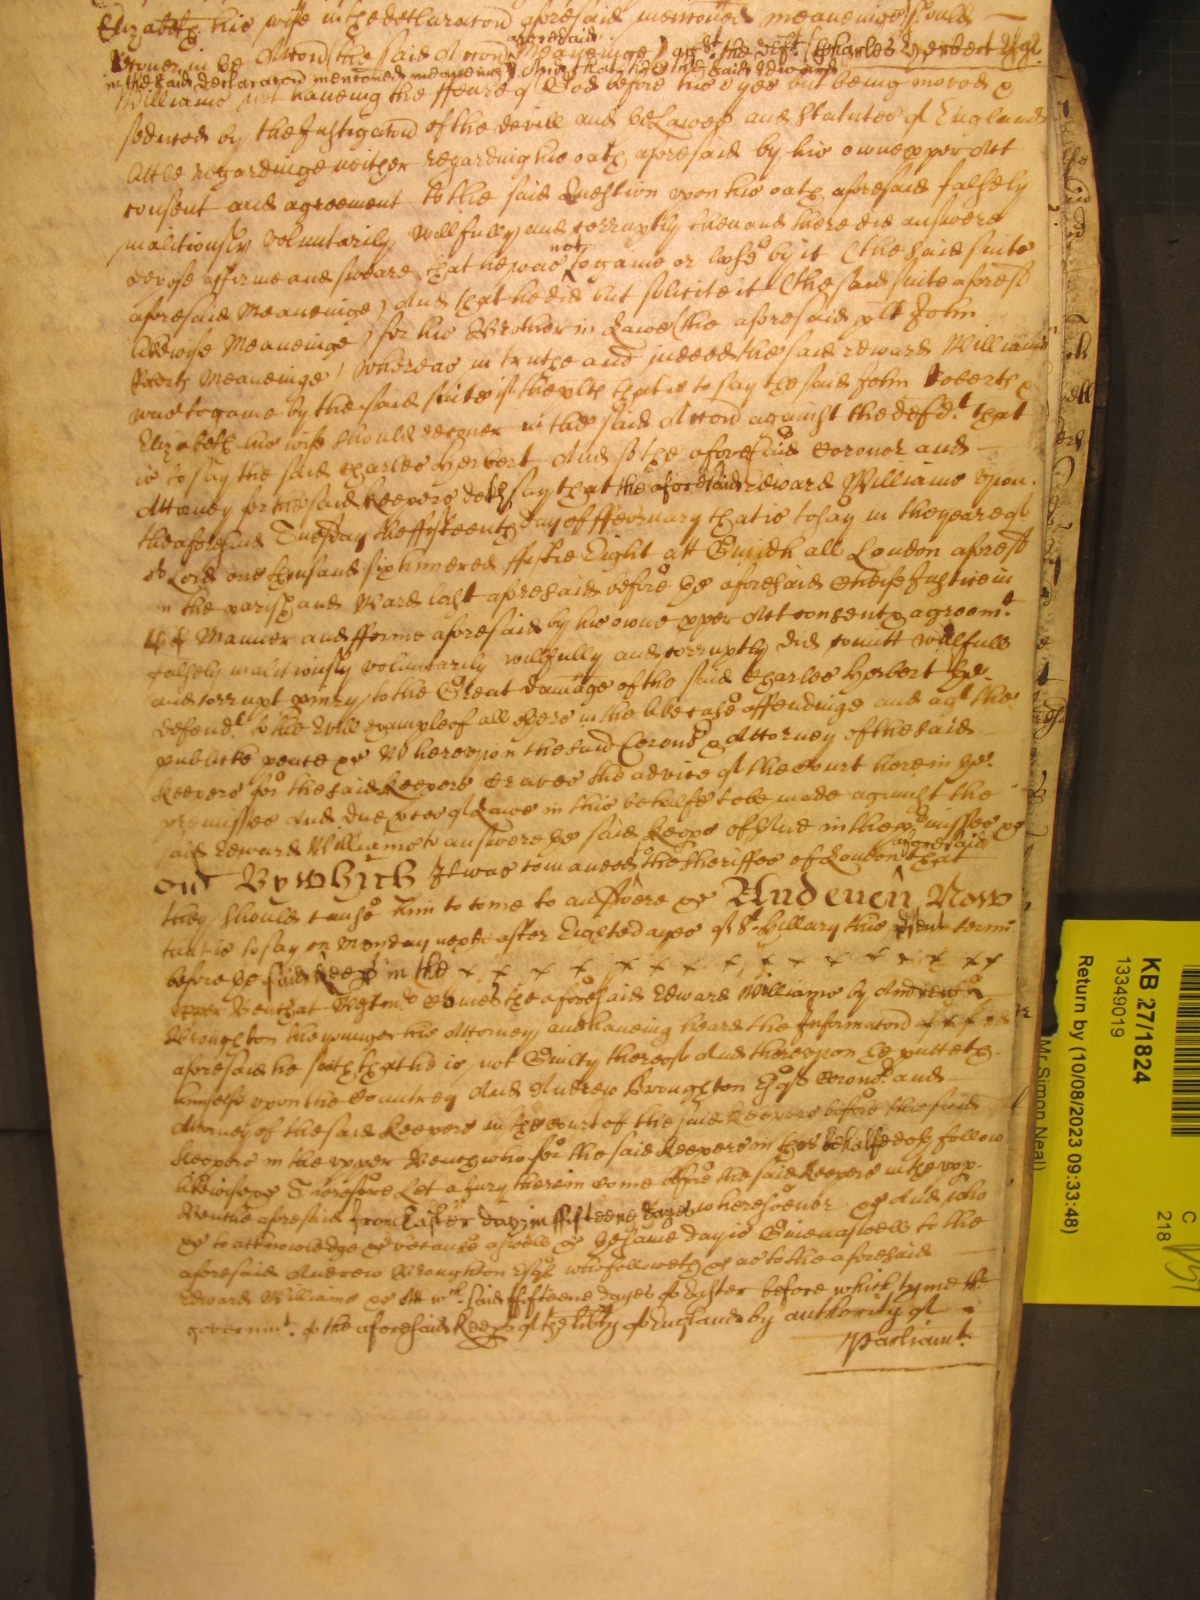 Elizabeth his wife in the declaracon aforesaid mentioned meaneinge) should
Recover in the Accon (the said Accon aforesaid Meaneinge) agst. the deft. (Charles Herbert Esqr.
in the said declaracon mentioned meaneinge) And that he the said Edward
Williams not haueing the ffeare of God before his eyes but being moved &
seduced by the Instigacon of the devill and the Lawes and Statutes of England
little regardinge neither regarding his oath aforesaid by his owne pper Act
consent and agreement to the said Question vpon his oath aforesaid falsely
malitiously voluntarily willfully and corruptly then and there did answere
depose affirme and sweare that he was not to game or loose by it (the said suite
aforesaid Meaneinge) And that he did but solicite it (the said suite aforesd
likewise Meaneinge) for his Brother in Lawe (the aforesaid plt John
Roberts Meaneinge) Whereas in truthe and indeed the said Edward Williams
was to game by the said suite if the plts that is to say the said John Roberts &
Elizabeth his wife should recover in the said Accon against the defdt. that
is to say the said Charles Herbert And so the aforesaid Coroner and
Attorney for the said Keepers doth say that the aforesaid Edward Williams vpon
the aforesaid Tuesday the ffifteenth day of ffebruary that is to say in the yeare of
or Lord one thousand six hundred ffiftie Eight att Guildhall London aforesd
in the parish and Ward last aforesaid before the aforesaid Cheife Justice in
Manner and fforme aforesaid by his owne pper Act consent & agreemt.
falsely malitiously voluntarily willfully and corruptly did comitt willfull
and corrupt piury to the Great damage of the said Charles Herbert the
defendt. to the evill example of all others in the like case offendinge and agt the
publicke peace &c Wherevpon the said Coronr & Attorney of the said
Keepers for the said Keepers craves the advice of the Court here in the
premisses And due pces of Lawe in this behalfe to be made against the
said Edward Williams to answere the said Keeps of & in the pmisses &c
out By which It was comanded to the Sheriffes of London aforesaid that
they should cause him to come to answere &c And euen Now
that is to say on Monday next after Eight dayes of St. Hillary this psent terme
before the said Keeps in the x x x x x x x x x x x x x
vpper Bench at Westmr comes the aforesaid Edward Williams by Andrew
Broughton the younger his Attorney and haueing heard the Informacon
aforesaid he saith that he is not Guilty thereof And therevpon he putteth
himselfe vpon the Countrey And Andrew Broughton Esqr Coronr. and
Attorney of the said Keepers in the Court of the said Keepers before the said
Keepers in the vpper Bench who for the said Keepers in this behalfe doth follow
likewise &c Therefore Let a Jury therein come before the said Keepers in the vpp.
Bench aforesaid from Easter day in ffifteene dayes wheresoeuer &c And who
&c to acknowledge &c because aswell &c the same day is Given aswell to the
aforesaid Andrew Broughton Esqr who followeth &c as to the aforesaid
Edward Williams &c Att wch. said ffifteene dayes of Easter before which tyme the
governmt. of the aforesaid Keeps of the libty of England by authority of
Parliamt.
KB 27/1824
13349019
Return by (10/08/2023 09:33:48)
Mr Simon Neal)
C
218